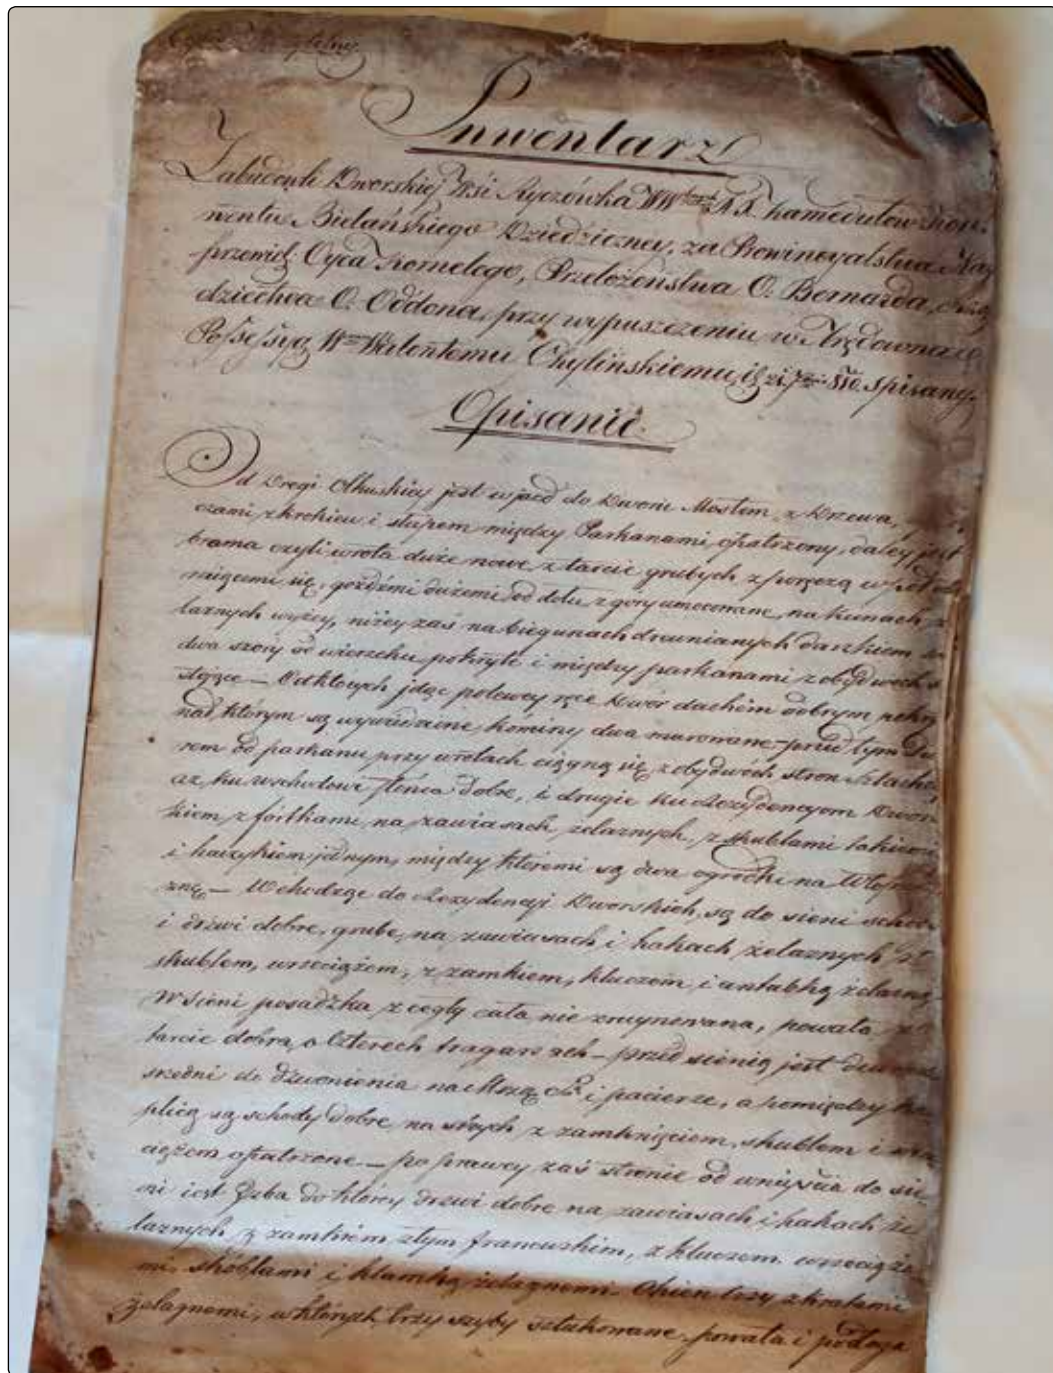 Inwentarz
Zabudowli Dworskiej Wsi Ryczówka WW XX. Kamedułów Kon-
wentu Bielańskiego Dziedziczney, za Prowincyalstwa Nay
przewiel: Oyca Kornelego, Przełożeństwa O. Bernarda,
dziectwa O. Oddona, przy wypuszczeniu w Arędowną
Possessyą Wmu Walentemu Chylińskiemu, 810. spisany.
Opisanie.
Od Drogi Olkuskiey jest wjazd do Dworu Mostem z Drzewa,
czami z krokiew i słupem między Parkanami, opatrzony, daley jest
brama czyli wrota duże nowe z tarcic grubych z poręczą wpół
miącemi się, goźdźmi dużemi od dołu, z gory umocowane, na kunach
laznych wyżey, niżey zaś na biegunach drewnianych daszkiem
dwa szory od wierzchu pokryte i między parkanami z obydwoch
stojące — Od których idąc po lewey ręce Dwór dachem dobrym
nad którym są wywiedzione kominy dwa murowane — przed tym
rem od parkanu przy wrotach ciągną się z obydwóch stron Sztachety
aż ku wschodowi słońca dobre, i drugie ku Rezydencyom
kiem z fórtkami na zawiasach żelaznych, z skublami takiemi
i haczykiem jednym, między któremi są dwa ogródki na Włoszczy-
znę — Wchodząc do Rezydencyi Dworskich, są do sieni schody
i drzwi dobre, grube, na zawiasach i hakach żelaznych
skublem, wrzeciążem, z zamkiem, kluczem i antabką żelazną
W sieni posadzka z cegły cała nie zruynowana, powała
tarcic dobra, o czterech tragarzach — przed sienią jest dzwonek
średni do dzwonienia na Mszą Stą i pacierze, a pomiędzy ka-
plicą są schody dobre, na strych z zamknięciem, skublem i wrze-
ciążem opatrzone — po prawey zaś stronie od wniyścia do sie-
ni iest Izba do którey drzwi dobre na zawiasach i hakach że-
laznych z zamkiem złym francuskim, z kluczem, wrzeciąża-
mi, skóblami i klamką żelaznemi. Okien trzy z kratami
żelaznemi, w których trzy szyby sztukowane, powała i podłoga